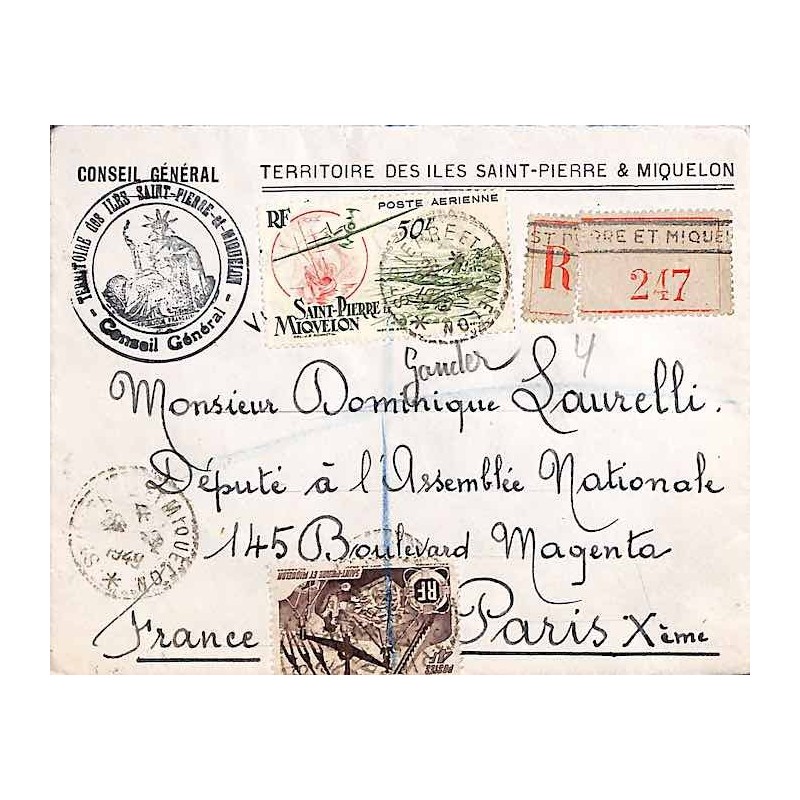 CONSEIL GÉNÉRAL
TERRITOIRE DES ILES SAINT-PIERRE & MIQUELON
TERRITOIRE des ILES SAINT-PIERRE-et-MIQUELON
- Conseil Général -
RF
POSTE AERIENNE
50f
SAINT-PIERRE ET
MIQUELON
ST PIERRE ET MIQUEL
R
247
Gander 4
Monsieur Dominique Laurelli.
Député à l'Assemblée Nationale
145 Boulevard Magenta
France Paris Xème
MIQUELON
1949
SAINT-PIERRE ET MIQUELON
RF
POSTES
4F